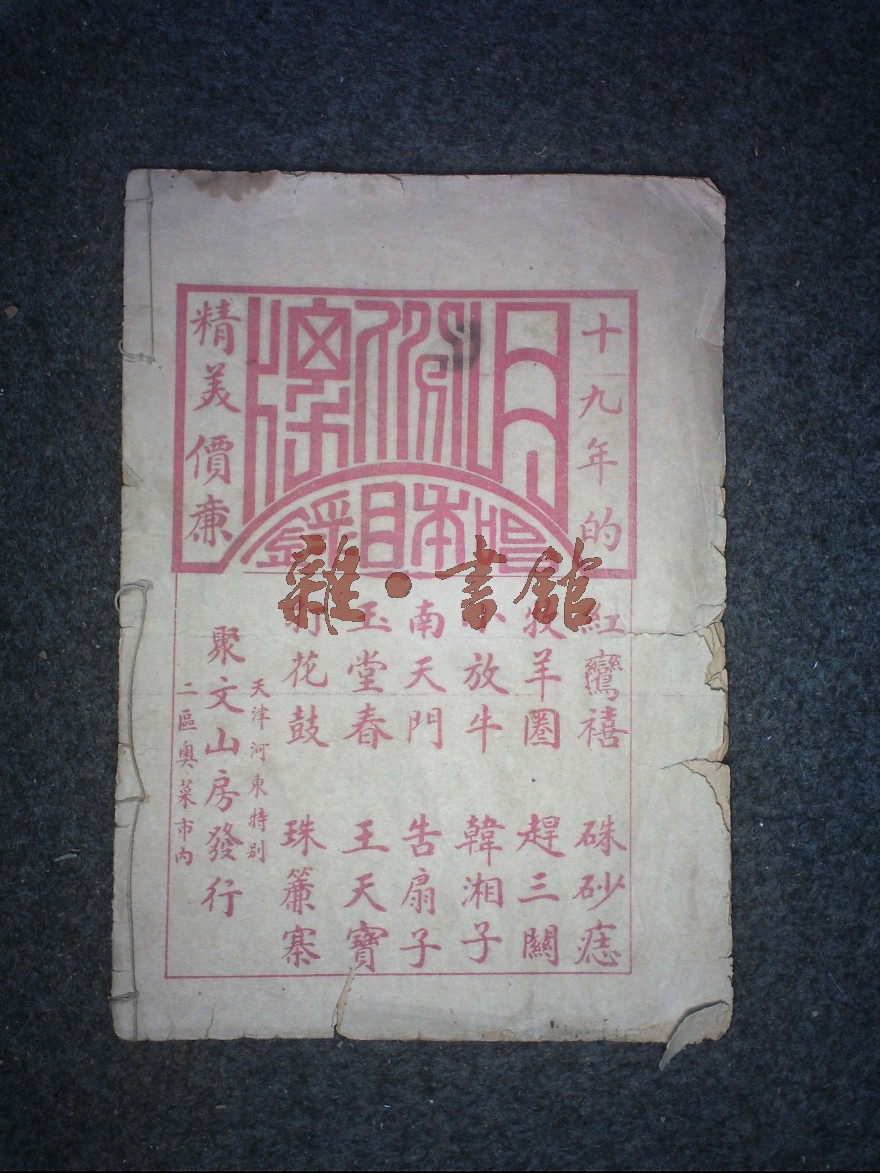 十九年的
唱本目錄
精美價廉
紅鸞禧 硃砂痣
牧羊圈 趕三關
小放牛 韓湘子
南天門 扇子
玉堂春 王天寶
打花鼓 珠簾寨
天津河東特別
二區奧菜市內
聚文山房發行
雜·書館